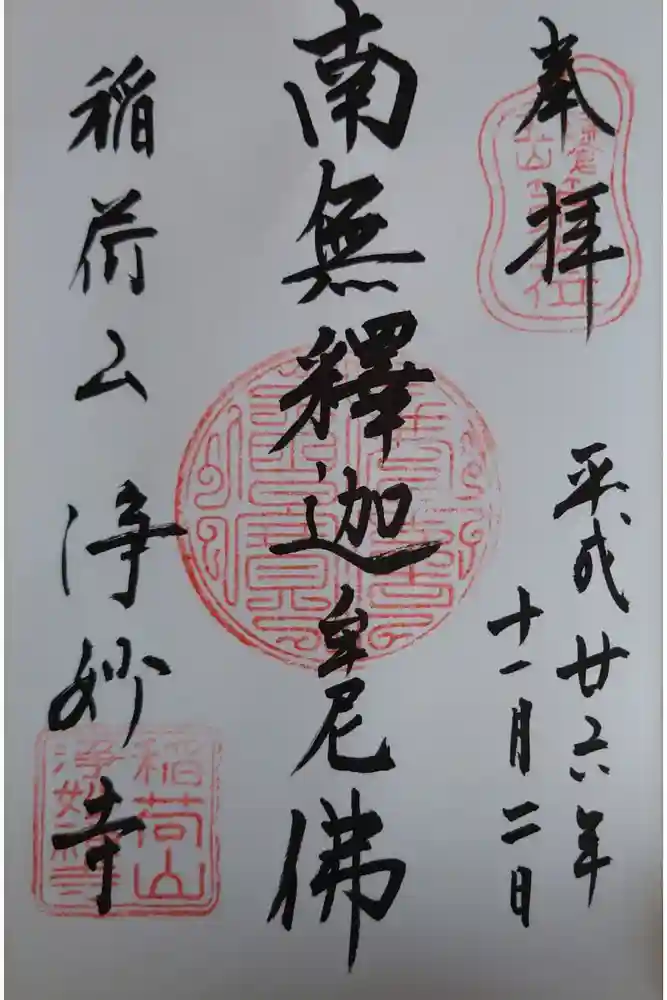 奉拝
平成廿六年
十一月二日
南無釋迦牟尼佛
稲荷山浄妙寺
稲荷山
浄妙禅寺